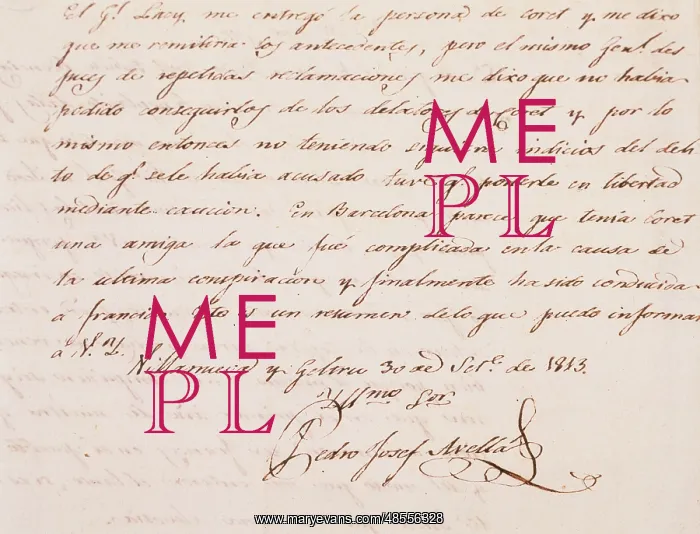 El G.l Lacy me entregó la persona de Coret y me dixo
que me remitiria los antecedentes, pero el mismo Gen.l des
pues de repetidas reclamaciones me dixo que no habia
podido conseguirlos de los delatores de Coret y por lo
mismo entonces no teniendo siquiera indicios del deli
to de q.e se le habia acusado tuve q.e ponerle en libertad
mediante caucion. En Barcelona parece que tenia Coret
una amiga la que fué complicada en la causa de
la ultima conspiracion y finalmente ha sido conducida
á Francia. Esto es un resumen de lo que puedo informar
á V. Y.
Villanueva y Geltru 30 de Set.e de 1813.
Yllmo Sor
Pedro Josef Avellá
ME
PL
ME
PL
www.maryevans.com/48556328